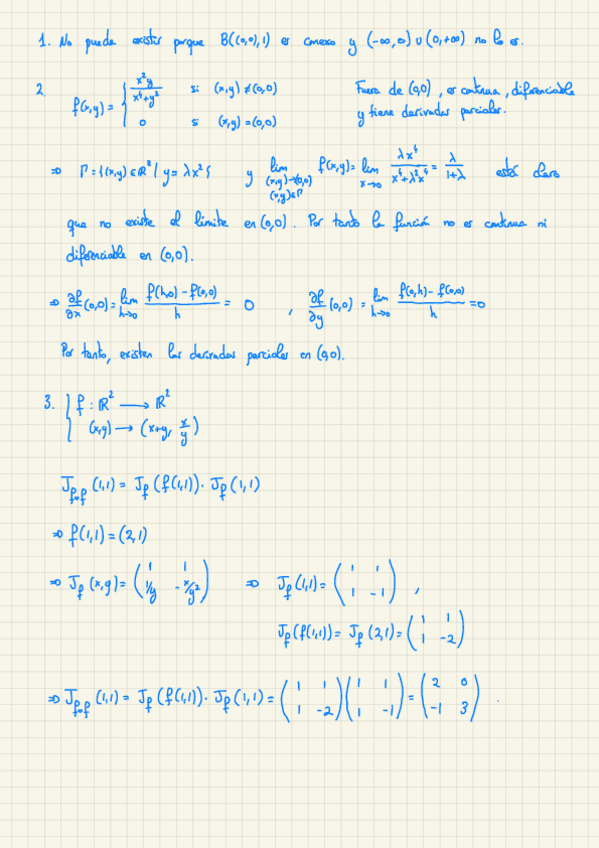 1. No puede existir porque B((0,0),1) es conexo y (-∞,0) ∪ (0,+∞) no lo es.
2. f(x,y) = { x²y / (x⁴+y²) si (x,y) ≠ (0,0) Fuera de (0,0), es continua, diferenciable
0 si (x,y) = (0,0) y tiene derivadas parciales.
⇒ Γ = {(x,y) ∈ ℝ² / y = λx²} y lim_{(x,y)→(0,0), (x,y)∈Γ} f(x,y) = lim_{x→0} λx⁴ / (x⁴+λ²x⁴) = λ / (1+λ) está claro
que no existe el límite en (0,0). Por tanto la función no es continua ni
diferenciable en (0,0).
⇒ ∂f/∂x (0,0) = lim_{h→0} (f(h,0) - f(0,0)) / h = 0 , ∂f/∂y (0,0) = lim_{h→0} (f(0,h) - f(0,0)) / h = 0
Por tanto, existen las derivadas parciales en (0,0).
3. { f : ℝ² ⟶ ℝ²
(x,y) ⟶ (x+y, x/y)
J_{f∘f} (1,1) = J_f (f(1,1)) · J_f (1,1)
⇒ f(1,1) = (2,1)
⇒ J_f (x,y) = ( 1 1 ; 1/y -x/y² ) ⇒ J_f (1,1) = ( 1 1 ; 1 -1 ) ,
J_f (f(1,1)) = J_f (2,1) = ( 1 1 ; 1 -2 )
⇒ J_{f∘f} (1,1) = J_f (f(1,1)) · J_f (1,1) = ( 1 1 ; 1 -2 ) ( 1 1 ; 1 -1 ) = ( 2 0 ; -1 3 ) .